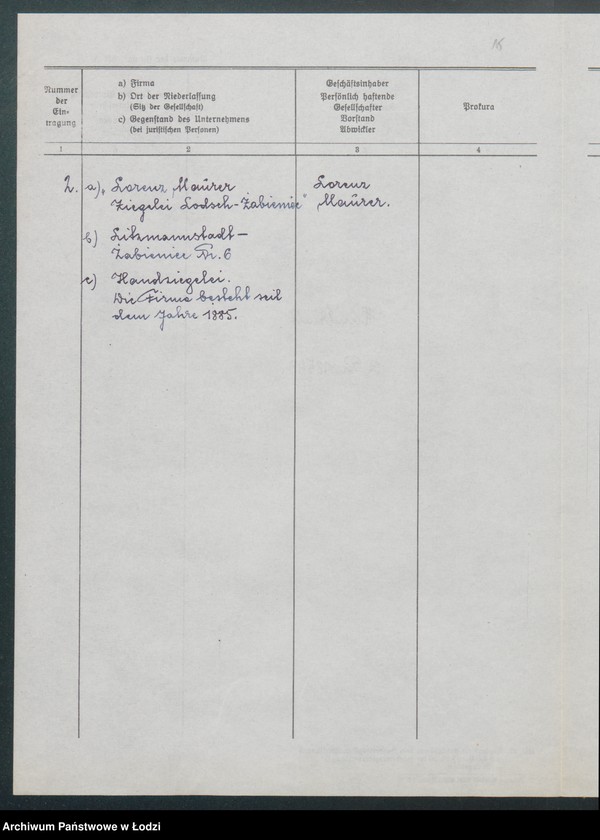 15
Nummer
der
Ein-
tragung
a) Firma
b) Ort der Niederlassung
(Sitz der Gesellschaft)
c) Gegenstand des Unternehmens
(bei juristischen Personen)
Geschäftsinhaber
Persönlich haftende
Gesellschafter
Vorstand
Abwickler
Prokura
1
2
3
4
2. a) „Lorenz Maurer
Ziegelei Lodsch-Żabieniec"
Lorenz
Maurer.
b) Litzmannstadt-
Żabieniec Nr. 6
c) Handziegelei.
Die Firma besteht seit
dem Jahre 1885.
Archiwum Państwowe w Łodzi